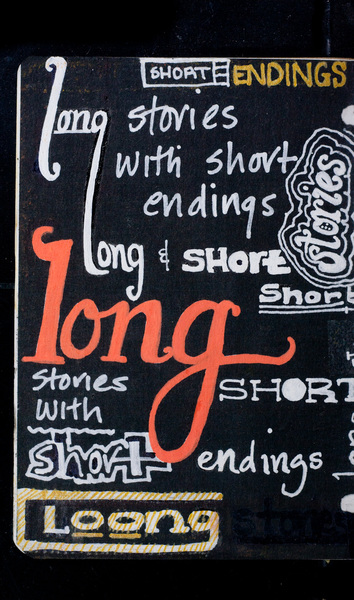 SHORT ENDINGS
long stories
with short
endings
stories
long & SHORt
Short
long
stories
with
SHORT
short endings
Loong stories